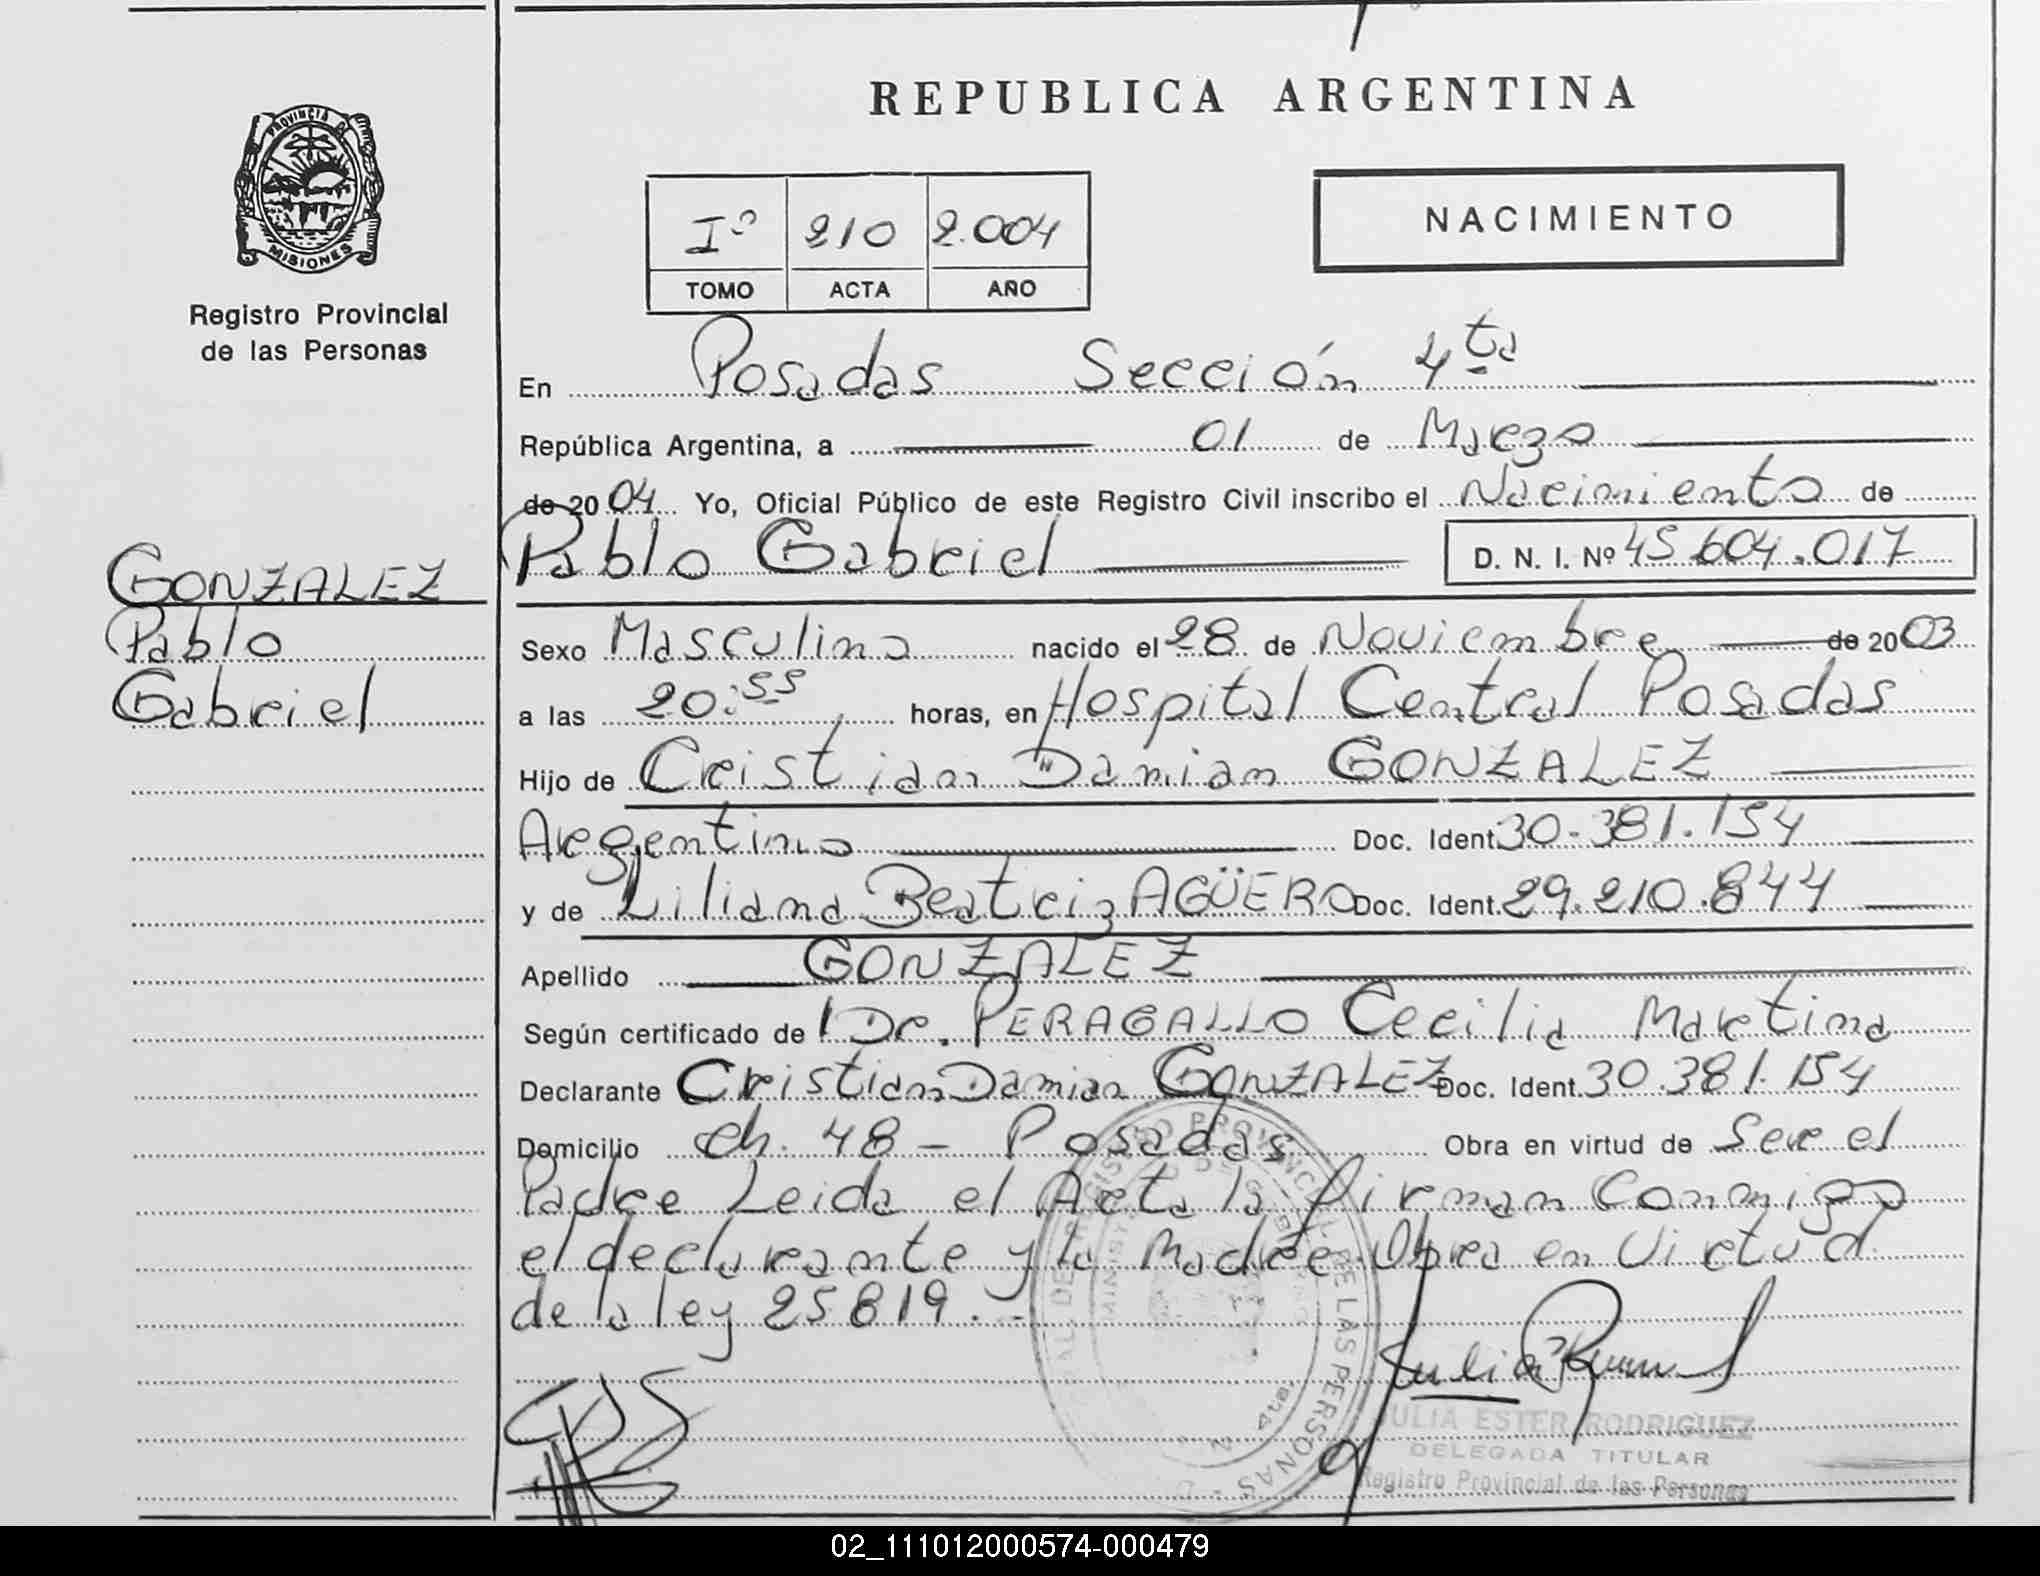 REPUBLICA ARGENTINA
PROVINCIA DE MISIONES
Registro Provincial
de las Personas
Iº 210 2.004
TOMO ACTA AÑO
NACIMIENTO
En Posadas Sección 4ta
República Argentina, a 01 de Marzo
de 2004 Yo, Oficial Público de este Registro Civil inscribo el Nacimiento de
Pablo Gabriel D. N. I. Nº 45.604.017
GONZALEZ
Pablo
Gabriel
Sexo Masculino nacido el 28 de Noviembre de 2003
a las 20:55 horas, en Hospital Central Posadas
Hijo de Cristian Damian GONZALEZ
Argentino Doc. Ident. 30.381.154
y de Liliana Beatriz AGÜERO Doc. Ident. 29.210.844
Apellido GONZALEZ
Según certificado de Dr. PERAGALLO Cecilia Martina
Declarante Cristian Damian GONZALEZ Doc. Ident. 30.381.154
Domicilio ch. 48 - Posadas Obra en virtud de Ser el
Padre Leida el Acta la firman Conmigo
el declarante y la Madre. Obra en Virtud
de la ley 25819.-
REGISTRO PROVINCIAL DE LAS PERSONAS
JULIA ESTER RODRIGUEZ
DELEGADA TITULAR
Registro Provincial de las Personas
02_111012000574-000479